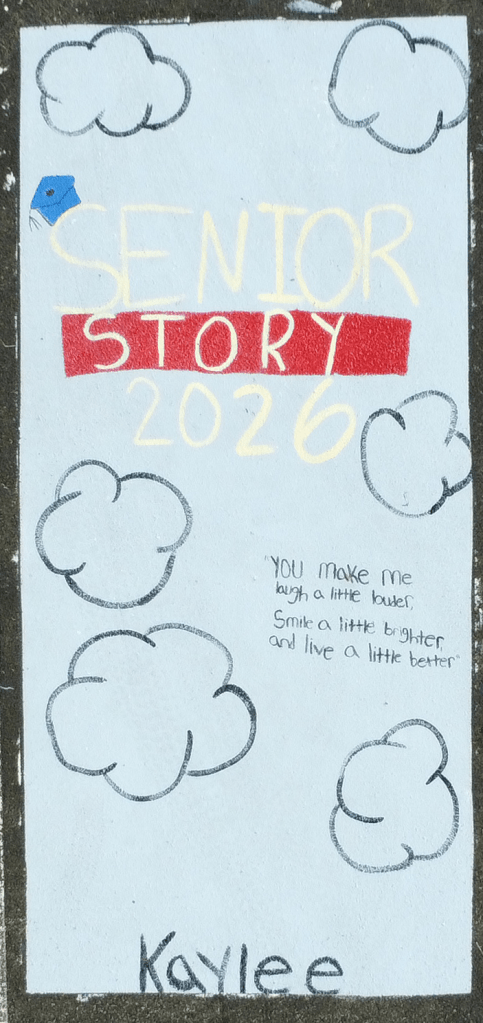 SENIOR
STORY
2026
"YOU make me
laugh a little louder,
Smile a little brighter,
and live a little better"
Kaylee